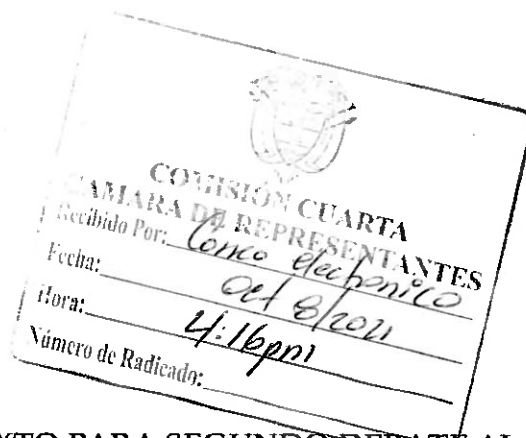 COMISIÓN CUARTA
CAMARA DE REPRESENTANTES
Recibido Por: Correo electronico
Fecha: Oct 8/2021
Hora: 4:16pm
Número de Radicado:
PARA SEGUNDO DEBATE AL